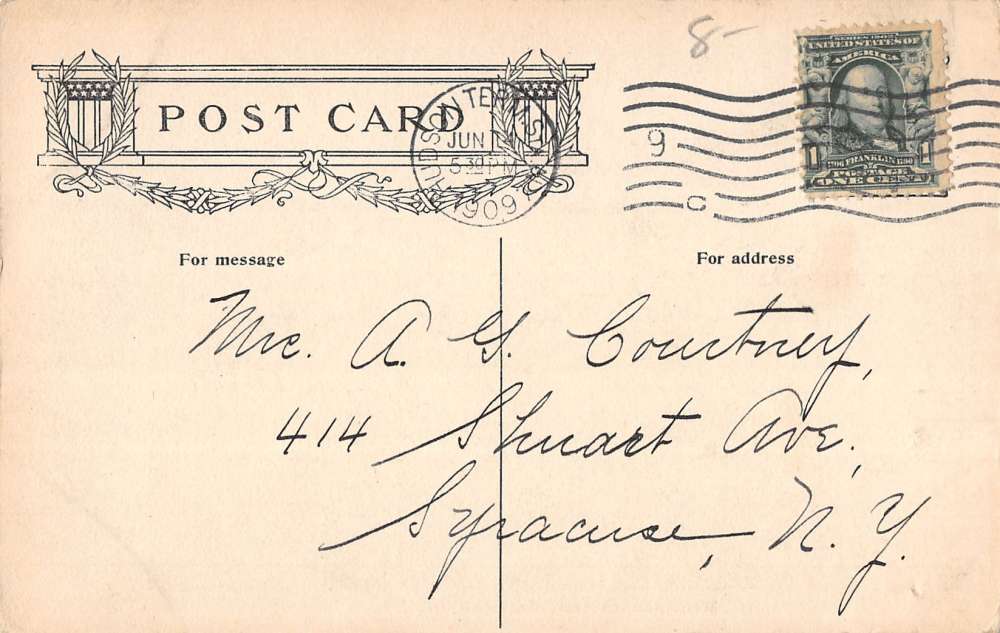 8-
SERIES 1902
UNITED STATES OF
AMERICA
POST CARD
HUDSON TERM. STA.
JUN
5 30 PM
1909
9
C
1 FRANKLIN 1
POSTAGE
ONE CENT
For message
For address
A. G. Courtney,
414 Stuart Ave.,
Syracuse, N. Y.